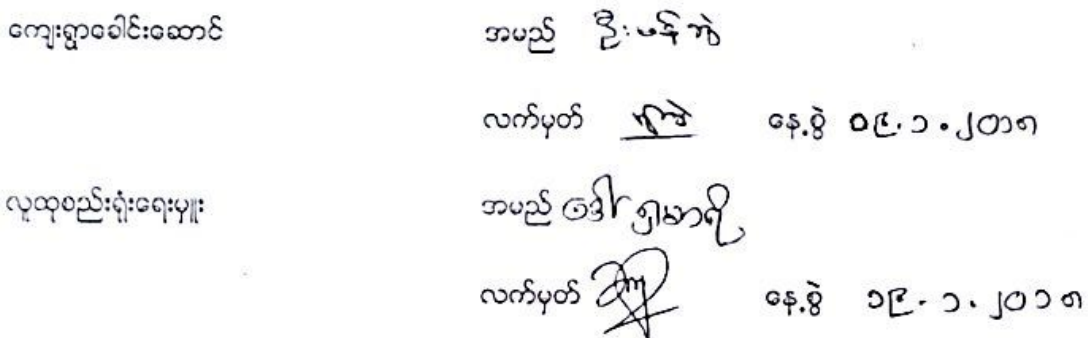 ကျေးရွာခေါင်းဆောင် အမည် ဦးဖန်အွဲ
လက်မှတ် နေ့စွဲ ၁၉.၁.၂၀၁၈
လူထုစည်းရုံးရေးမှူး အမည် ဒေါ်ရှာမာရီ
လက်မှတ် နေ့စွဲ ၁၉.၁.၂၀၁၈